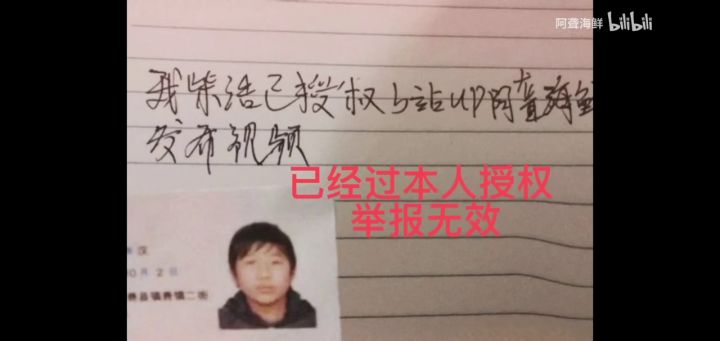 阿聋海鲜 bilibili
我柴浩已授权b站UP阿聋海鲜
发布视频
已经过本人授权
举报无效
汉
0月2日
县镇 镇二街